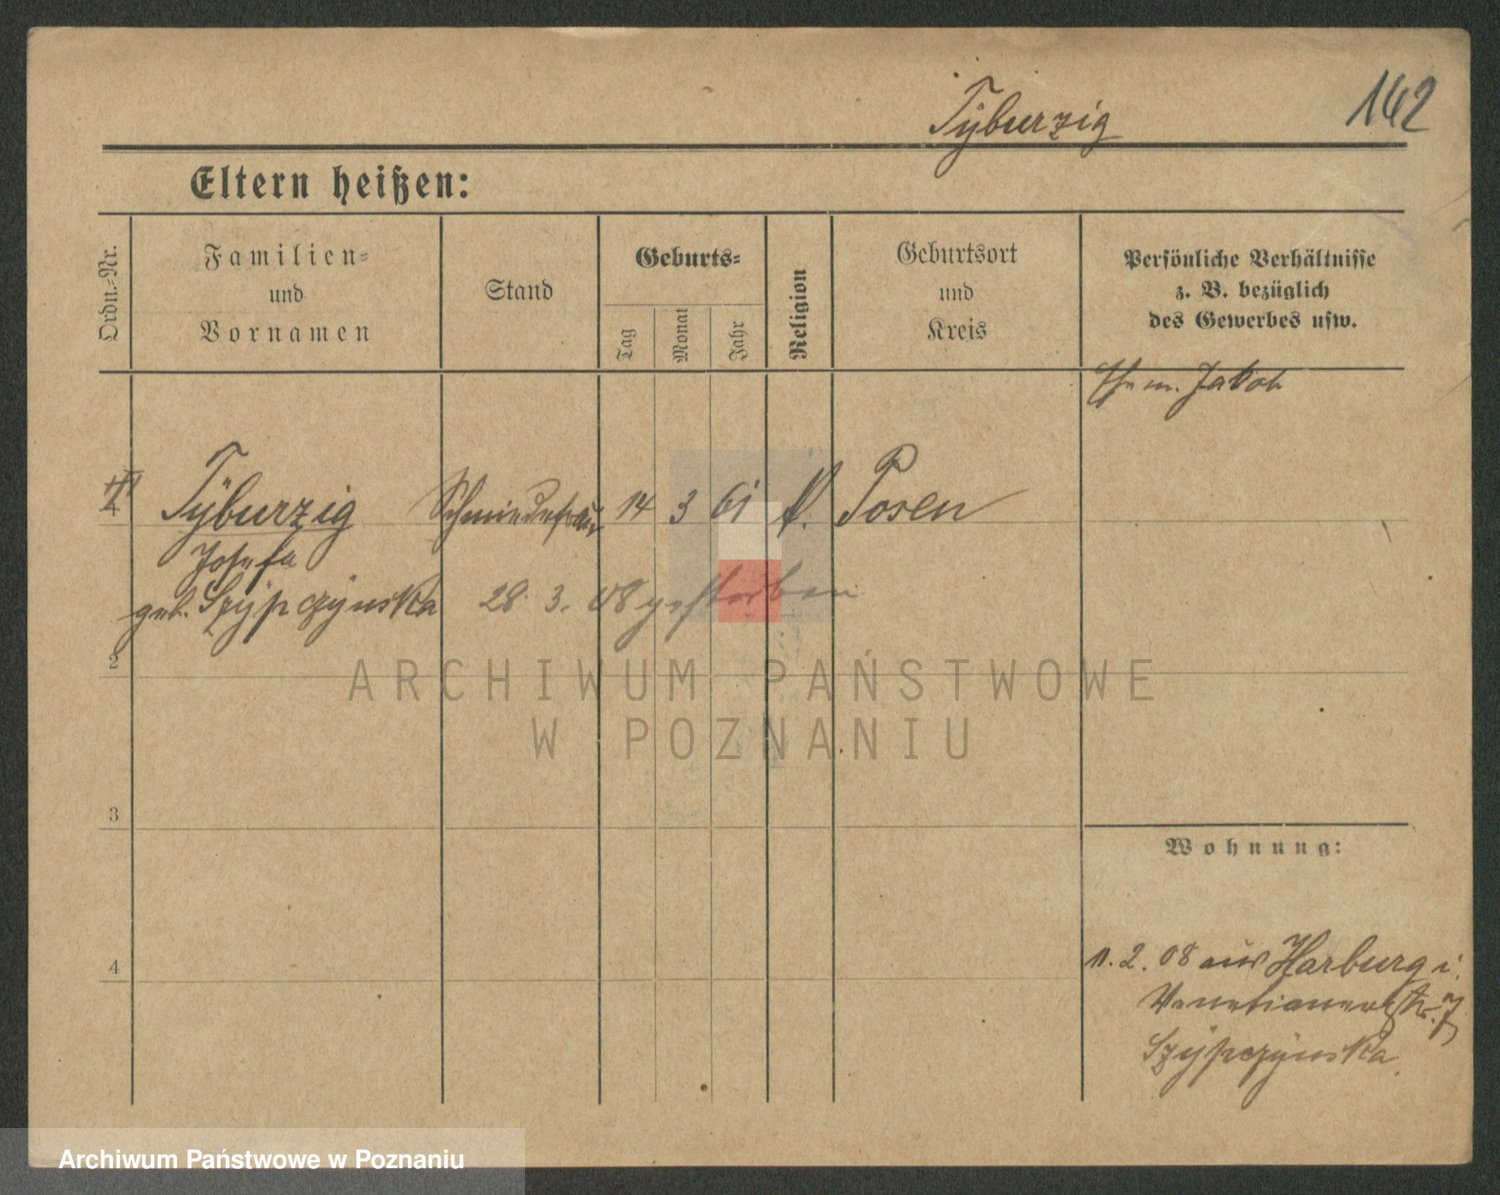 Tÿburzig
162
Eltern heißen:
Ordn.-Nr.
Familien-
und
Vornamen
Stand
Geburts-
Tag
Monat
Jahr
Religion
Geburtsort
und
Kreis
Persönliche Verhältnisse
z. B. bezüglich
des Gewerbes usw.
Ehem. Jakob
Tÿburzig Schmiedefrau 14 3 61 k. Posen
Josefa
geb. Szÿpczÿnska 28. 3. 08 gestorben
2
ARCHIWUM PAŃSTWOWE
W POZNANIU
3
Wohnung:
4
11. 2. 08 aus Harburg i.
Venetianerstr. 7
Szÿpczÿnska
Archiwum Państwowe w Poznaniu